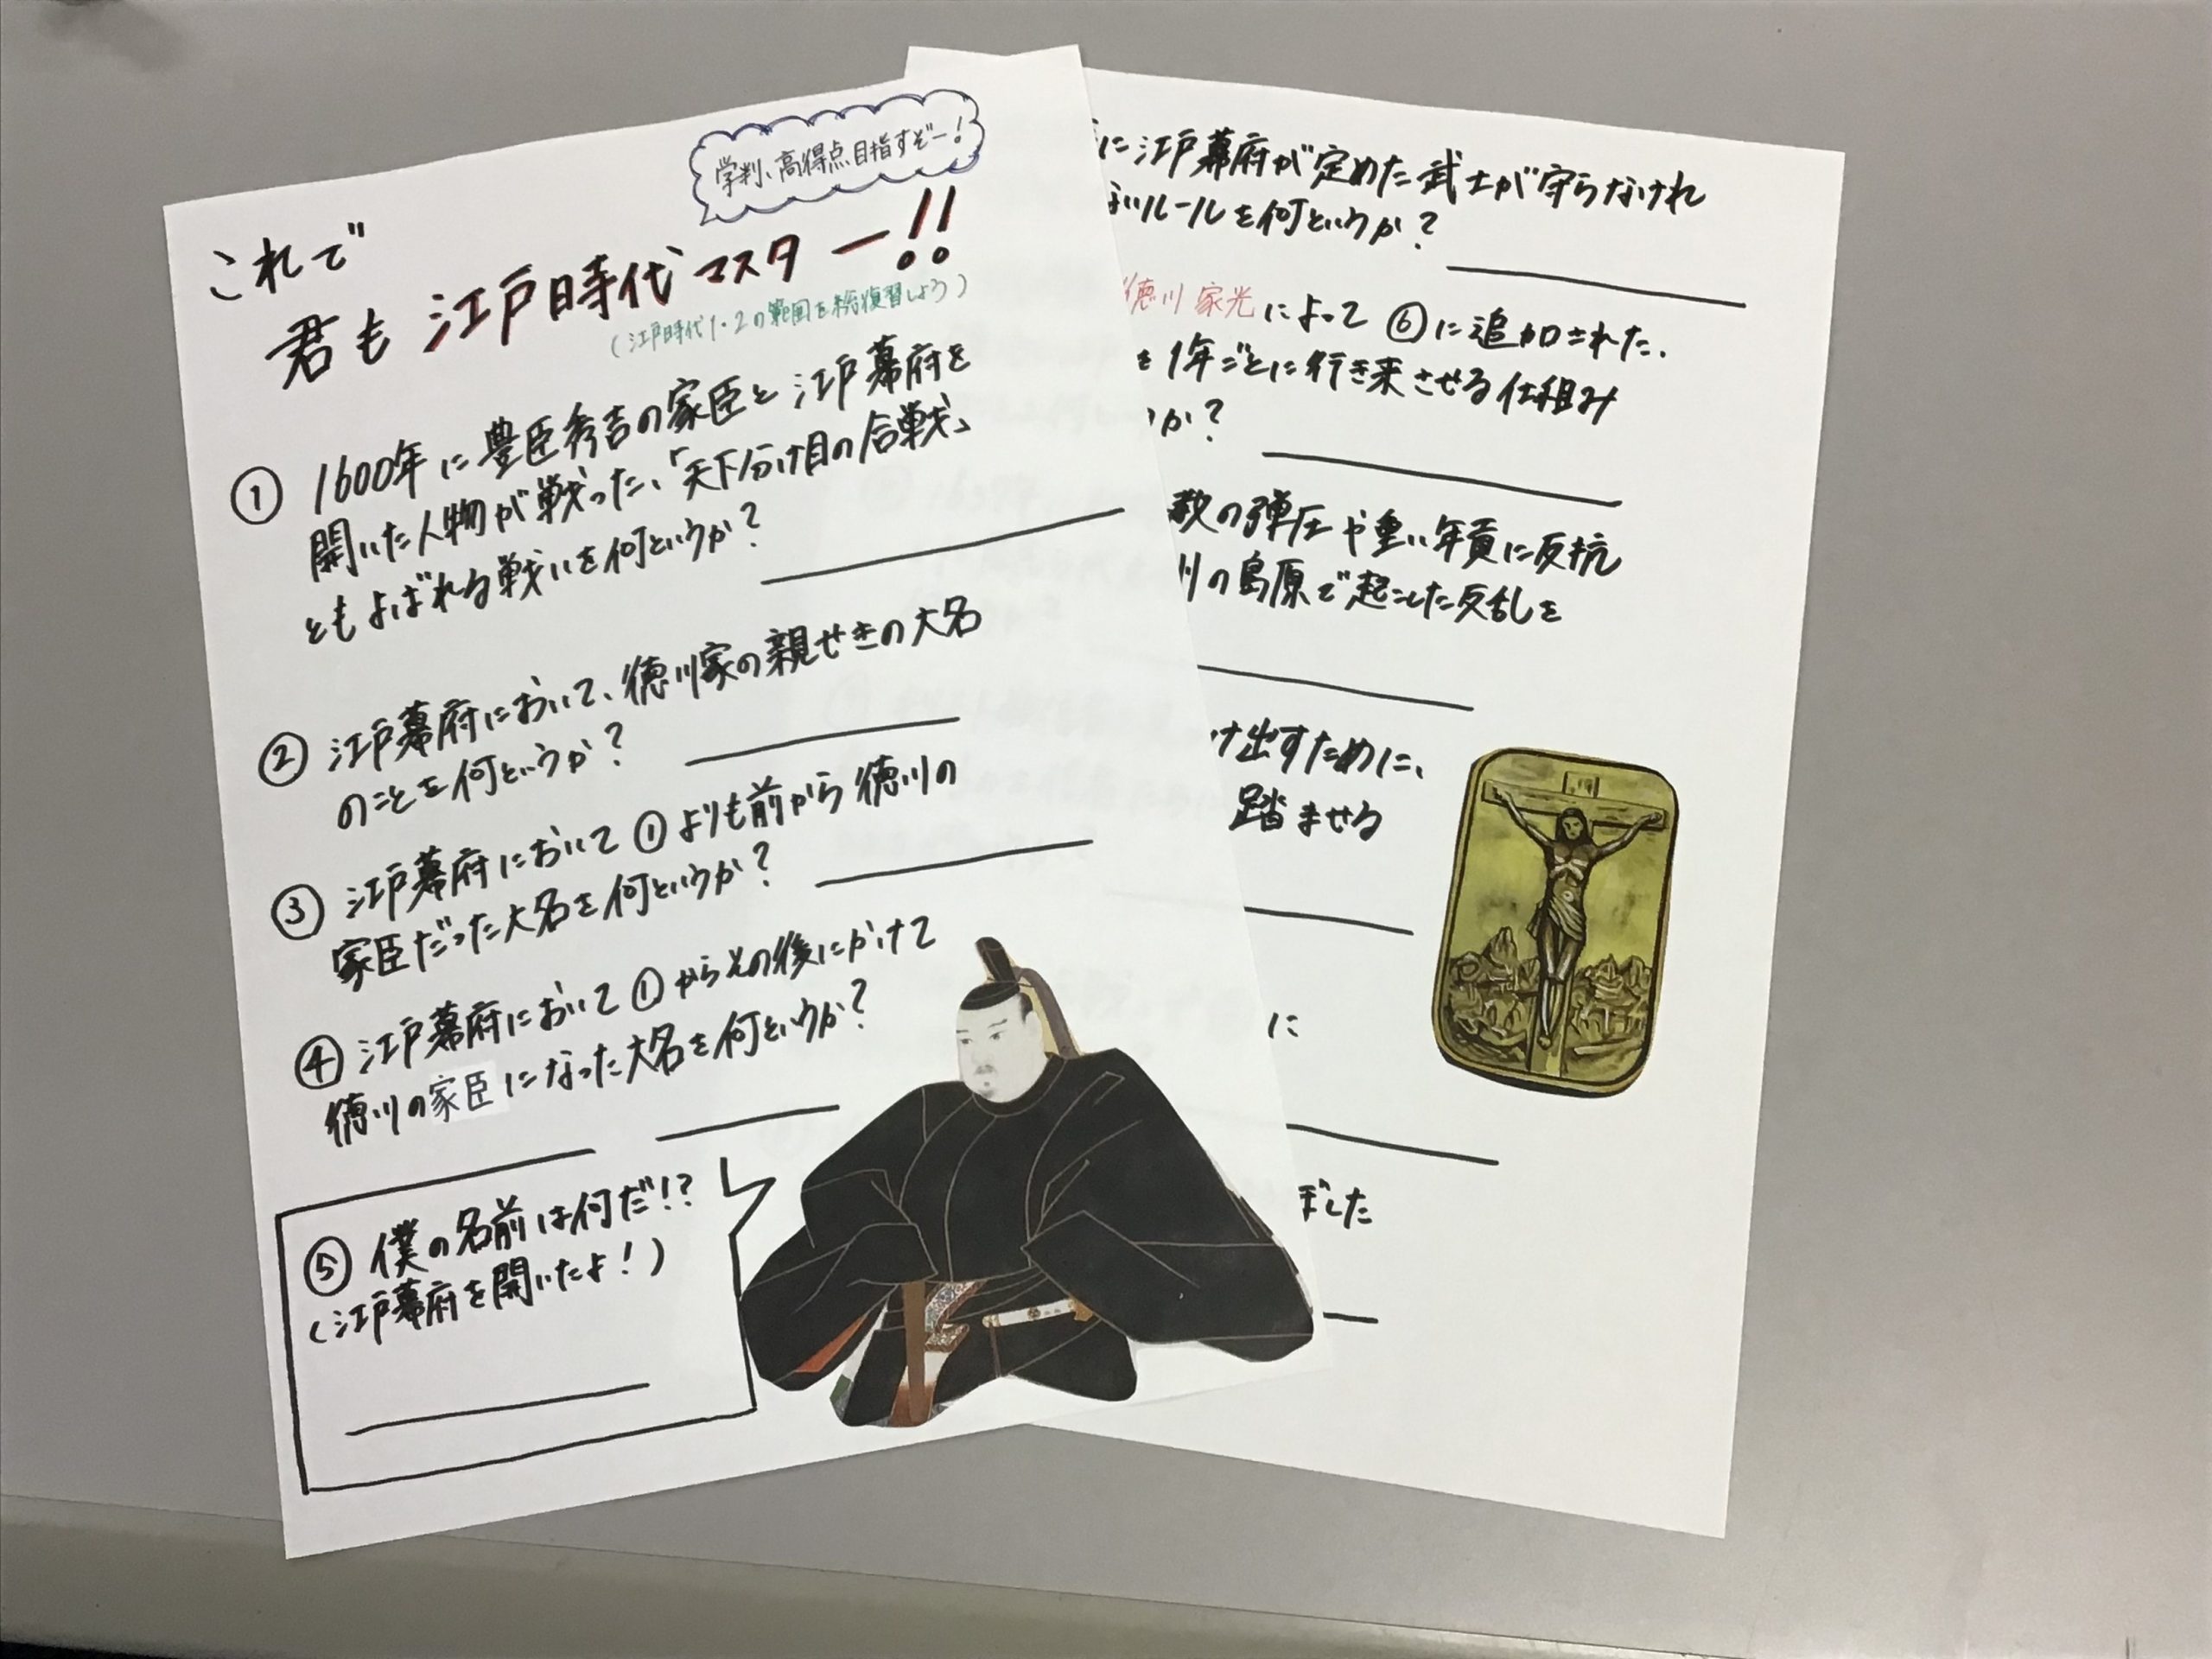 学判、高得点目指すぞー!
これで
君も江戸時代マスター!!
(江戸時代1・2の範囲を総復習しよう)
① 1600年に豊臣秀吉の家臣と江戸幕府を
開いた人物が戦った、「天下分け目の合戦」
ともよばれる戦いを何というか?
② 江戸幕府において、徳川家の親せきの大名
のことを何というか?
③ 江戸幕府において①よりも前から徳川の
家臣だった大名を何というか?
④ 江戸幕府において①からその後にかけて
徳川の家臣になった大名を何というか?
⑤ 僕の名前は何だ!?
(江戸幕府を開いたよ!)
に江戸幕府が定めた武士が守らなけれ
ないルールを何というか?
徳川家光によって⑥に追加された、
を1年ごとに行き来させる仕組み
か?
教の弾圧や重い年貢に反抗
の島原で起こした反乱を
け出すために、
踏ませる
に
ぼした